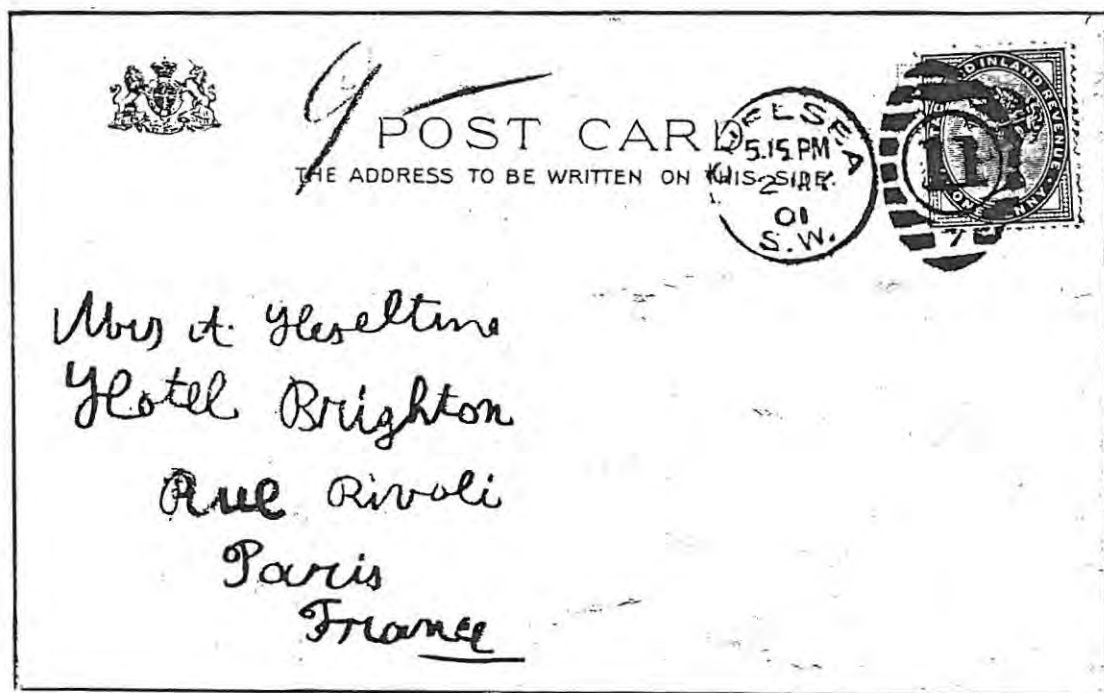 9
POST CARD
THE ADDRESS TO BE WRITTEN ON THIS SIDE.
CHELSEA
5.15 PM
2
01
S.W.
11
7
INLAND REVENUE
ONE PENNY
Mrs A. Heseltine
Hotel Brighton
Rue Rivoli
Paris
France